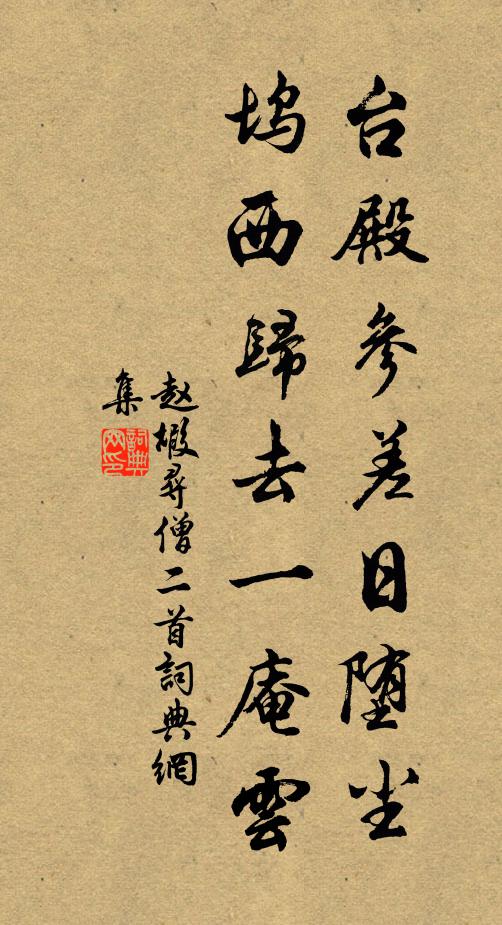 台殿參差日堕尘
坞西歸去一庵雲
赵嘏尋僧二首詞典網
集
詞典网印